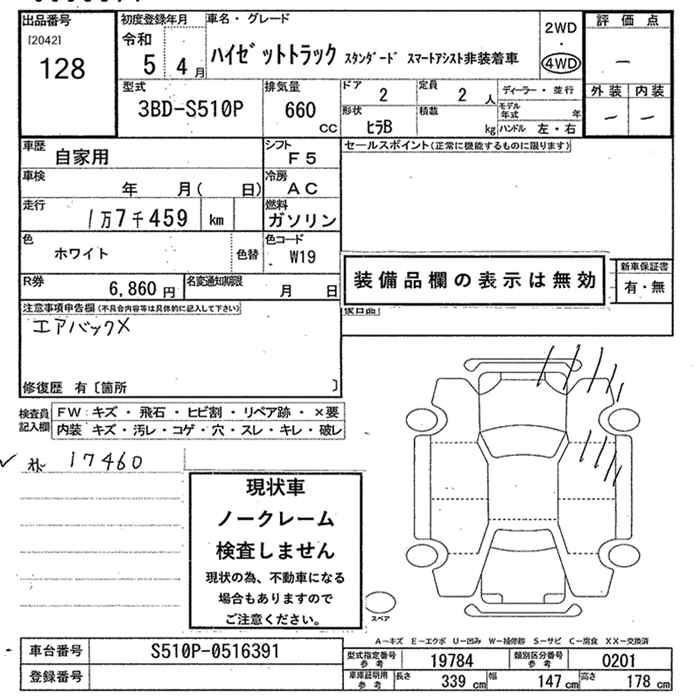 出品番号
[2042]
128
初度登録年月
令和
5 4 月
車名・グレード
ハイゼットトラック スタンダード スマートアシスト非装着車
2WD
・
4WD
評価点
―
外装 内装
― ―
型式
3BD-S510P
排気量
660
CC
ドア
2
定員
2 人
ディーラー・並行
形状
ヒラB
積載
kg
モデル
年式
年
ハンドル 左・右
車歴
自家用
シフト
F5
セールスポイント(正常に機能するものに限ります)
車検
年 月( 日)
冷房
AC
走行
1万7千459 km
燃料
ガソリン
色
ホワイト
色替
色コード
W19
装備品欄の表示は無効
新車保証書
有・無
R券
6,860 円
名変通知期限
月 日
注意事項申告欄(不具合内容等は具体的に記入して下さい)
エアバックX
修復歴 有〔箇所 〕
検査員
記入欄
FW:キズ・飛石・ヒビ割・リペア跡・×要
内装 キズ・汚レ・コゲ・穴・スレ・キレ・破レ
17460
現状車
ノークレーム
検査しません
現状の為、不動車になる
場合もありますので
ご注意ください。
スペア
A―キズ E―エクボ U―凹み W―補修跡 S―サビ C―腐食 XX―交換済
車台番号
S510P-0516391
登録番号
型式指定番号
参考
19784
類別区分番号
参考
0201
車庫証明用
参考
長さ
339 cm
幅
147 cm
高さ
178 cm